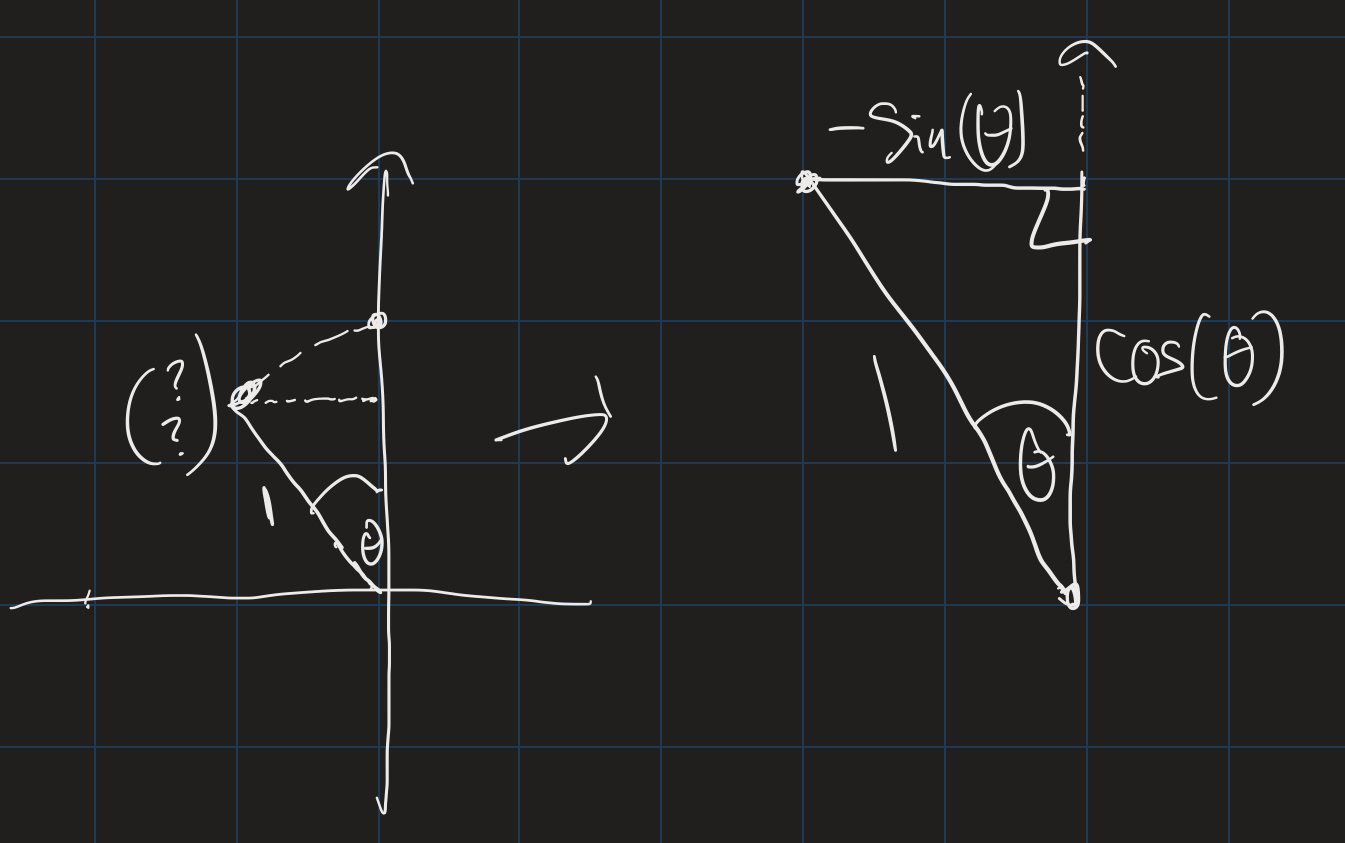 (?
?)
1
θ
-Sin(θ)
1
θ
Cos(θ)